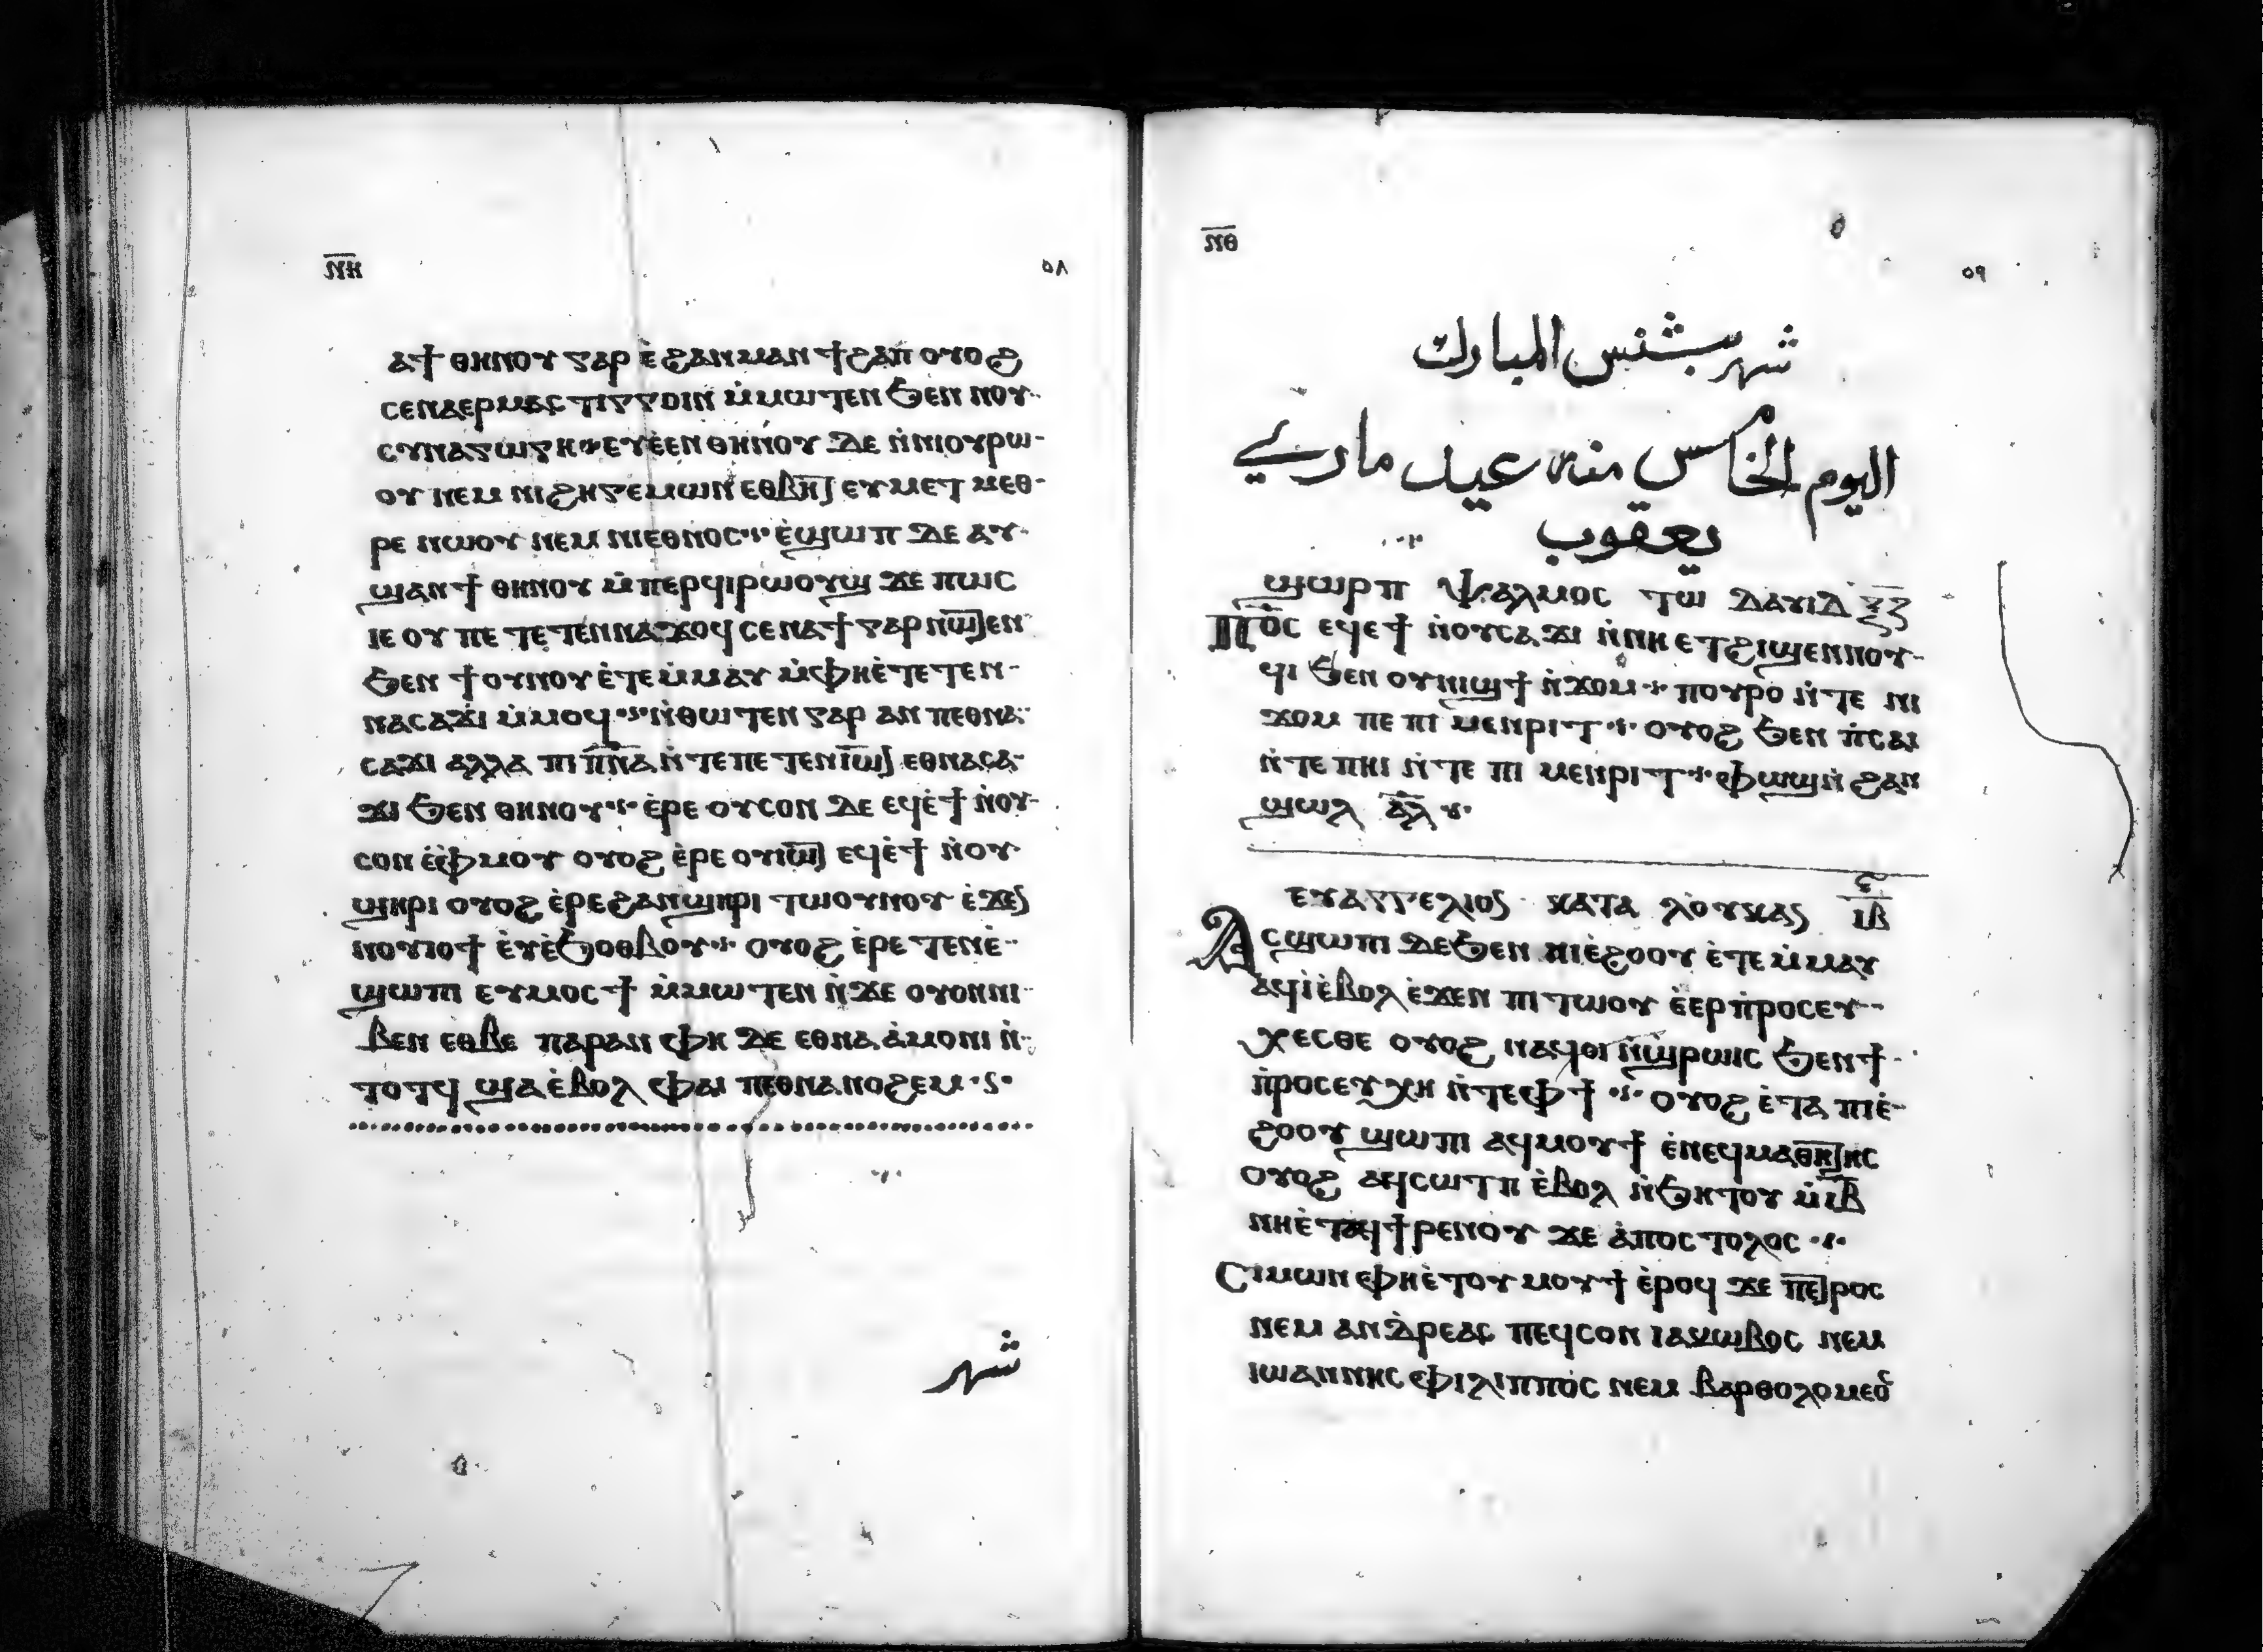 ⲛⲏ
٥٨
ⲁϯ ⲑⲏⲛⲟⲩ ⲅⲁⲣ ⲉ̀ϩⲁⲛⲙⲁⲛϯϩⲁⲡ ⲟⲩⲟϩ
ⲥⲉⲛⲁⲉⲣⲙⲁⲥⲧⲓⲅⲅⲟⲓⲛ ⲙ̀ⲙⲱⲧⲉⲛ ϧⲉⲛ ⲛⲟⲩ-
ⲥⲩⲛⲁⲅⲱⲅⲏ ⲉⲩⲉ̀ⲉⲛ ⲑⲏⲛⲟⲩ ⲇⲉ ⲛ̀ⲛⲓⲟⲩⲣⲱ-
ⲟⲩ ⲛⲉⲙ ⲛⲓϩⲏⲅⲉⲙⲱⲛ ⲉⲑⲃⲏⲧ ⲉⲩⲙⲉⲧⲙⲉⲑ-
ⲣⲉ ⲛⲱⲟⲩ ⲛⲉⲙ ⲛⲓⲉⲑⲛⲟⲥ ⲉ̀ϣⲱⲡ ⲇⲉ ⲁⲩ-
ϣⲁⲛϯ ⲑⲏⲛⲟⲩ ⲙ̀ⲡⲉⲣϥⲓⲣⲱⲟⲩϣ ϫⲉ ⲡⲱⲥ
ⲓⲉ ⲟⲩ ⲡⲉ ⲧⲉⲧⲉⲛⲛⲁϫⲟϥ ⲥⲉⲛⲁϯ ⲅⲁⲣ ⲛⲱⲧⲉⲛ
ϧⲉⲛ ϯⲟⲩⲛⲟⲩ ⲉ̀ⲧⲉⲙ̀ⲙⲁⲩ ⲙ̀ⲫⲏⲉ̀ⲧⲉⲧⲉⲛ-
ⲛⲁⲥⲁϫⲓ ⲙ̀ⲙⲟϥ ⲛ̀ⲑⲱⲧⲉⲛ ⲅⲁⲣ ⲁⲛ ⲡⲉⲑⲛⲁ-
ⲥⲁϫⲓ ⲁⲗⲗⲁ ⲡⲓⲡ̅ⲛ̅ⲁ̅ ⲛ̀ⲧⲉⲡⲉⲧⲉⲛⲓⲱⲧ ⲉⲑⲛⲁⲥⲁ-
ϫⲓ ϧⲉⲛ ⲑⲏⲛⲟⲩ ⲉ̀ⲣⲉ ⲟⲩⲥⲟⲛ ⲇⲉ ⲉϥⲉ̀ϯ ⲛ̀ⲟⲩ-
ⲥⲟⲛ ⲉ̀ⲫ̀ⲙⲟⲩ ⲟⲩⲟϩ ⲉ̀ⲣⲉ ⲟⲩⲓⲱⲧ ⲉϥⲉ̀ϯ ⲛ̀ⲟⲩ
ϣⲏⲣⲓ ⲟⲩⲟϩ ⲉ̀ⲣⲉϩⲁⲛϣⲏⲣⲓ ⲧⲱⲟⲩⲛⲟⲩ ⲉ̀ϫⲉⲛ
ⲛⲟⲩⲓⲟϯ ⲉⲩⲉ̀ϧⲟⲑⲃⲟⲩ ⲟⲩⲟϩ ⲉ̀ⲣⲉⲧⲉⲛⲉ̀-
ϣⲱⲡⲓ ⲉⲩⲙⲟⲥϯ ⲙ̀ⲙⲱⲧⲉⲛ ⲛ̀ϫⲉ ⲟⲩⲟⲛⲛⲓ-
ⲃⲉⲛ ⲉⲑⲃⲉ ⲡⲁⲣⲁⲛ ⲫⲏ ⲇⲉ ⲉⲑⲛⲁⲁ̀ⲙⲟⲛⲓ ⲛ̀-
ⲧⲟⲧϥ ϣⲁⲉ̀ⲃⲟⲗ ⲫⲁⲓ ⲡⲉⲑⲛⲁⲛⲟϩⲉⲙ
شهر
ⲛⲑ
٥٩
شهر بشنس المبارك
اليوم الخامس منه عيد ماري
يعقوب
ϣⲱⲣⲡ ⲯⲁⲗⲙⲟⲥ ⲧⲱ ⲇⲁⲩⲓⲇ ⲝ̅ⲍ̅
ⲡ︦ⲟ︦ⲥ ⲉϥⲉϯ ⲛ̀ⲟⲩⲥⲁϫⲓ ⲛ̀ⲛⲏⲉⲧϩⲓϣⲉⲛⲛⲟⲩ-
ϥⲓ ϧⲉⲛ ⲟⲩⲛⲓϣϯ ⲛ̀ϫⲟⲙ ⲡⲟⲩⲣⲟ ⲛ̀ⲧⲉ ⲛⲓ
ϫⲟⲙ ⲡⲉ ⲡⲓⲙⲉⲛⲣⲓⲧ ⲟⲩⲟϩ ϧⲉⲛ ⲡ̀ⲥⲁⲓ
ⲛ̀ⲧⲉ ⲡⲏⲓ ⲛ̀ⲧⲉ ⲡⲓⲙⲉⲛⲣⲓⲧ ⲫⲱϣ ⲛ̀ϩⲁⲛ
ϣⲱⲗ ⲁ̅ⲗ̅
ⲉⲩⲁⲅⲅⲉⲗⲓⲟⲥ ⲕⲁⲧⲁ ⲗⲟⲩⲕⲁⲥ ⲋ̅ ⲓ̅ⲃ̅
ⲁⲥϣⲱⲡⲓ ⲇⲉϧⲉⲛ ⲛⲓⲉ̀ϩⲟⲟⲩ ⲉ̀ⲧⲉⲙ̀ⲙⲁⲩ
ⲁϥⲓ̀ⲉ̀ⲃⲟⲗ ⲉ̀ϫⲉⲛ ⲡⲓⲧⲱⲟⲩ ⲉ̀ⲉⲣⲡ̀ⲣⲟⲥⲉⲩ-
ⲭⲉⲥⲑⲉ ⲟⲩⲟϩ ⲛⲁϥⲟⲓ ⲛ̀ϣⲣⲱⲓⲥ ϧⲉⲛϯ
ⲡ̀ⲣⲟⲥⲉⲩⲭⲏ ⲛ̀ⲧⲉⲫϯ ⲟⲩⲟϩ ⲉ̀ⲧⲁ ⲡⲓⲉ̀-
ϩⲟⲟⲩ ϣⲱⲡⲓ ⲁϥⲙⲟⲩϯ ⲉ̀ⲛⲉϥⲙⲁⲑⲏⲧⲏⲥ
ⲟⲩⲟϩ ⲁϥⲥⲱⲧⲡ ⲉ̀ⲃⲟⲗ ⲛ̀ϧⲏⲧⲟⲩ ⲙ̀ⲓ̅ⲃ̅
ⲛⲏⲉ̀ⲧⲁϥϯⲣⲉⲛⲟⲩ ϫⲉ ⲁ̀ⲡⲟⲥⲧⲟⲗⲟⲥ
ⲥⲓⲙⲱⲛ ⲫⲏⲉ̀ⲧⲟⲩⲙⲟⲩϯ ⲉ̀ⲣⲟϥ ϫⲉ ⲡⲉⲧⲣⲟⲥ
ⲛⲉⲙ ⲁⲛⲇⲣⲉⲁⲥ ⲡⲉϥⲥⲟⲛ ⲓⲁⲕⲱⲃⲟⲥ ⲛⲉⲙ
ⲓⲱⲁⲛⲛⲏⲥ ⲫⲓⲗⲓⲡⲡⲟⲥ ⲛⲉⲙ ⲃⲁⲣⲑⲟⲗⲟⲙⲉⲟⲥ